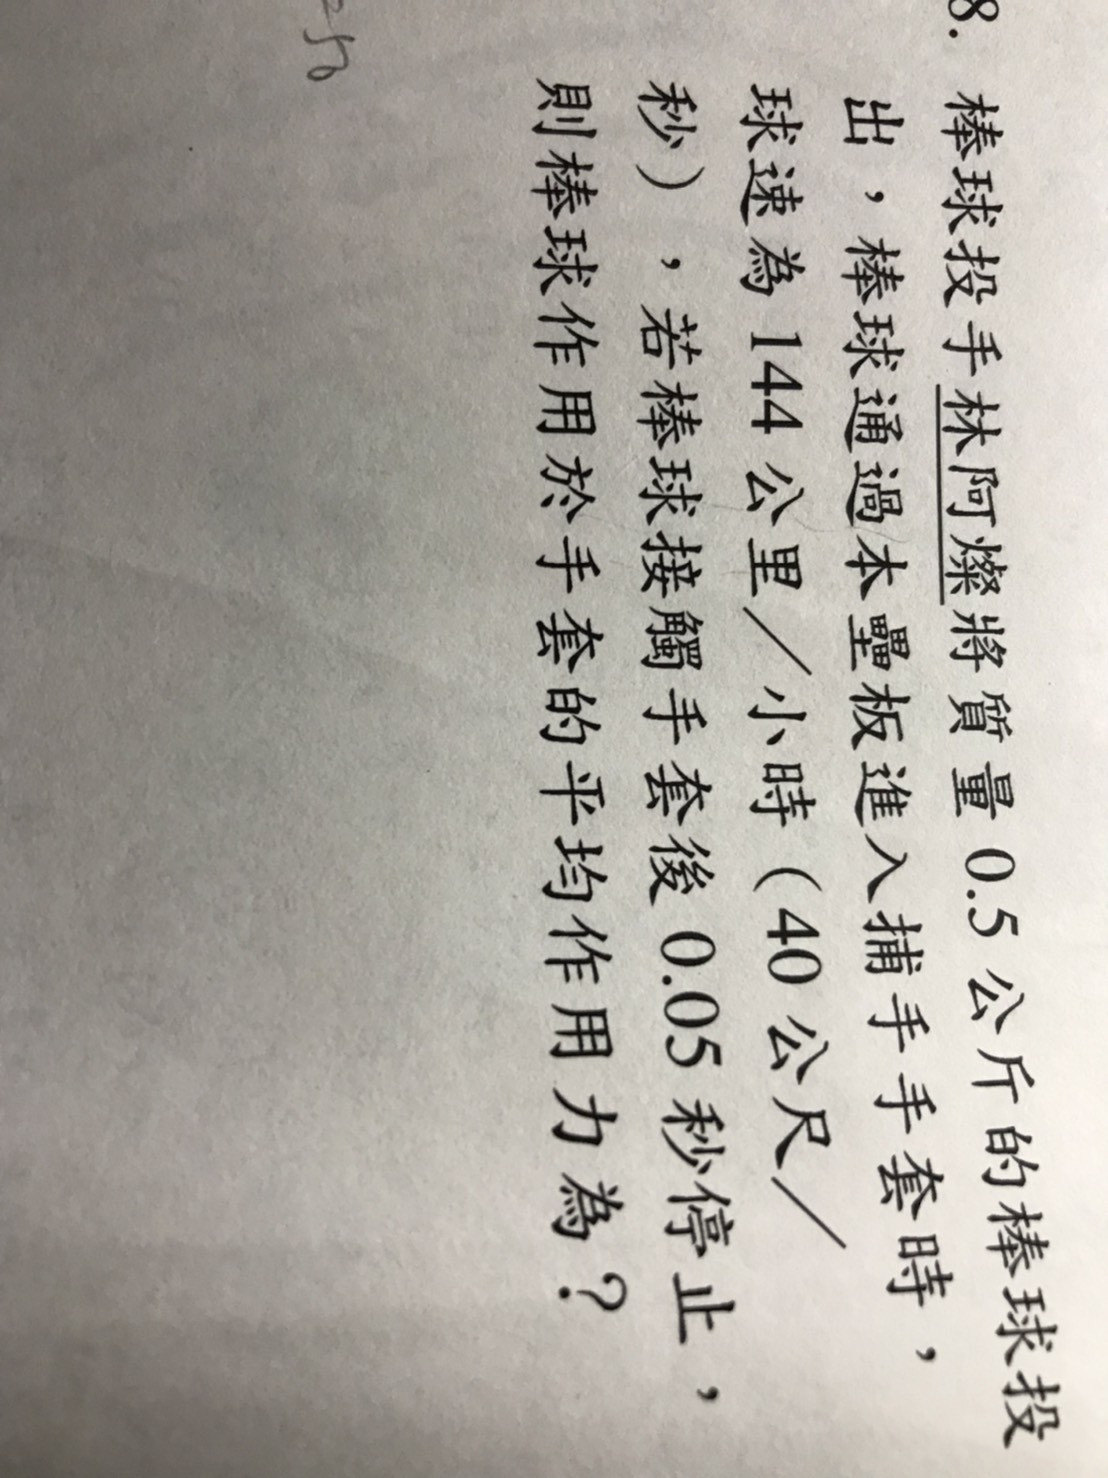 8. 棒球投手林阿燦將質量 0.5 公斤的棒球投
出，棒球通過本壘板進入捕手手套時，
球速為 144 公里／小時（40 公尺／
秒），若棒球接觸手套後 0.05 秒停止，
則棒球作用於手套的平均作用力為？